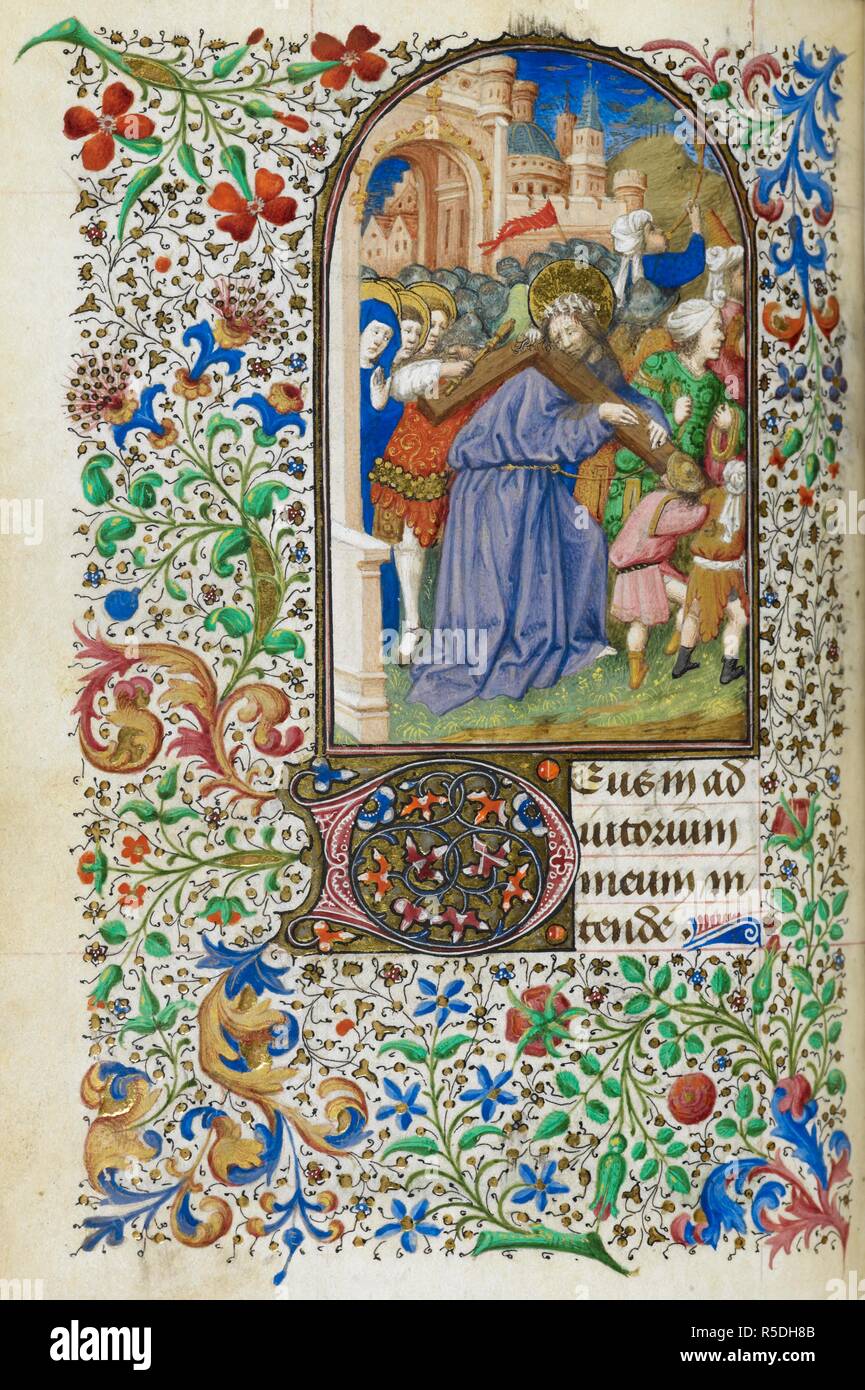 Deus in ad
iutorium
meum in
tende.
alamy
Image ID: R5DH8B
www.alamy.com